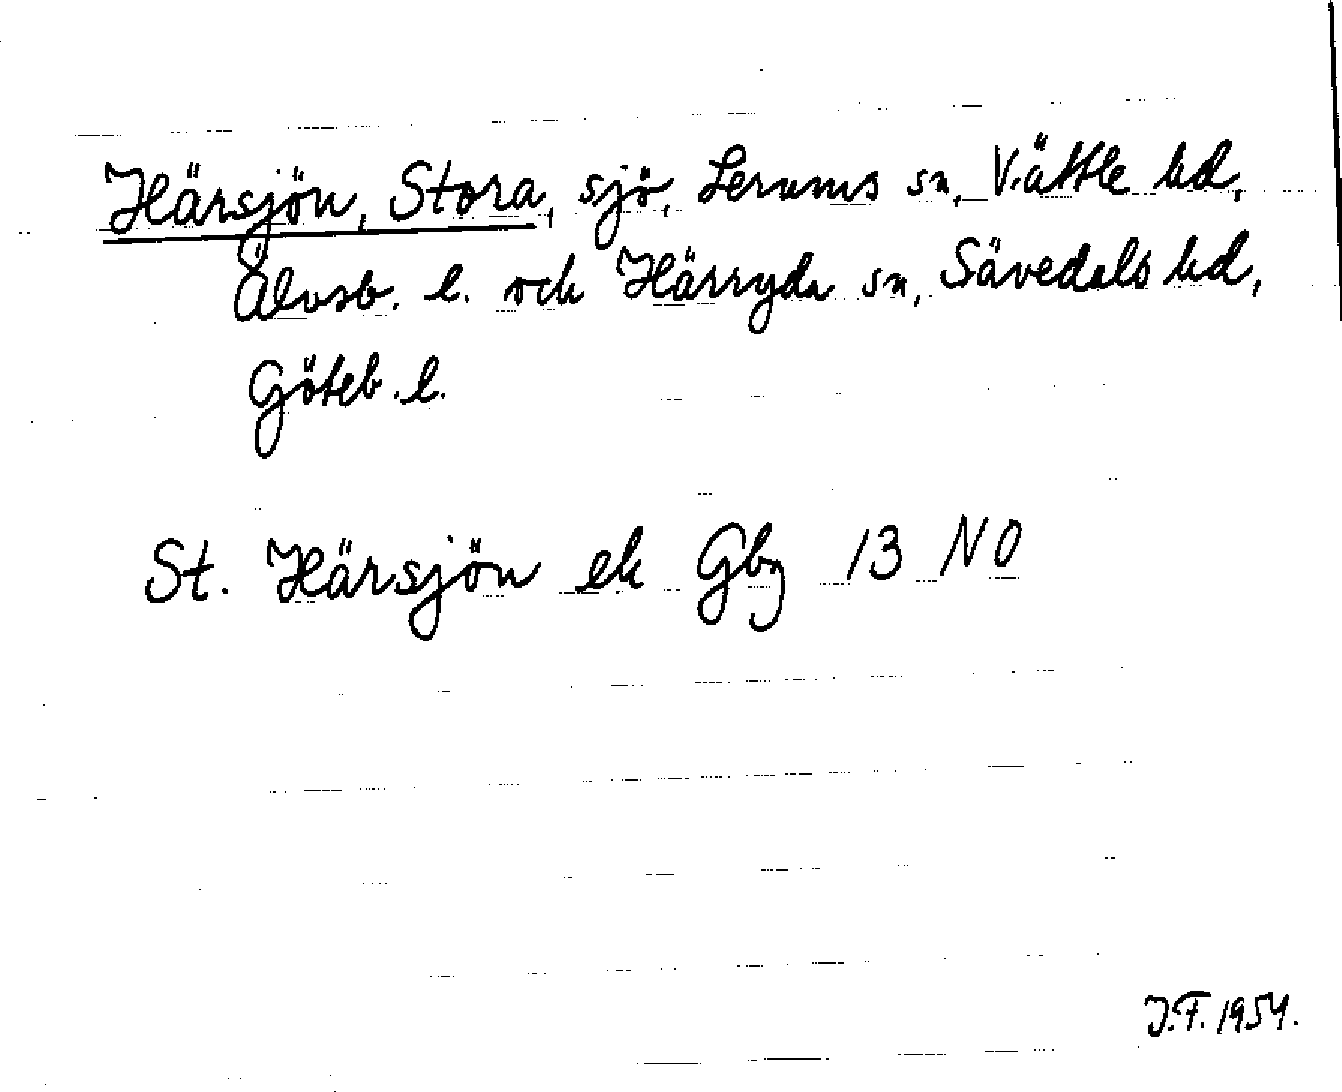 Härsjön, Stora, sjö, Lerums sn, Vättle hd,
Älvsb. l. och Härryda sn, Sävedals hd,
Göteb. l.
St. Härsjön ek Gbg 13 NO
J.F. 1954.